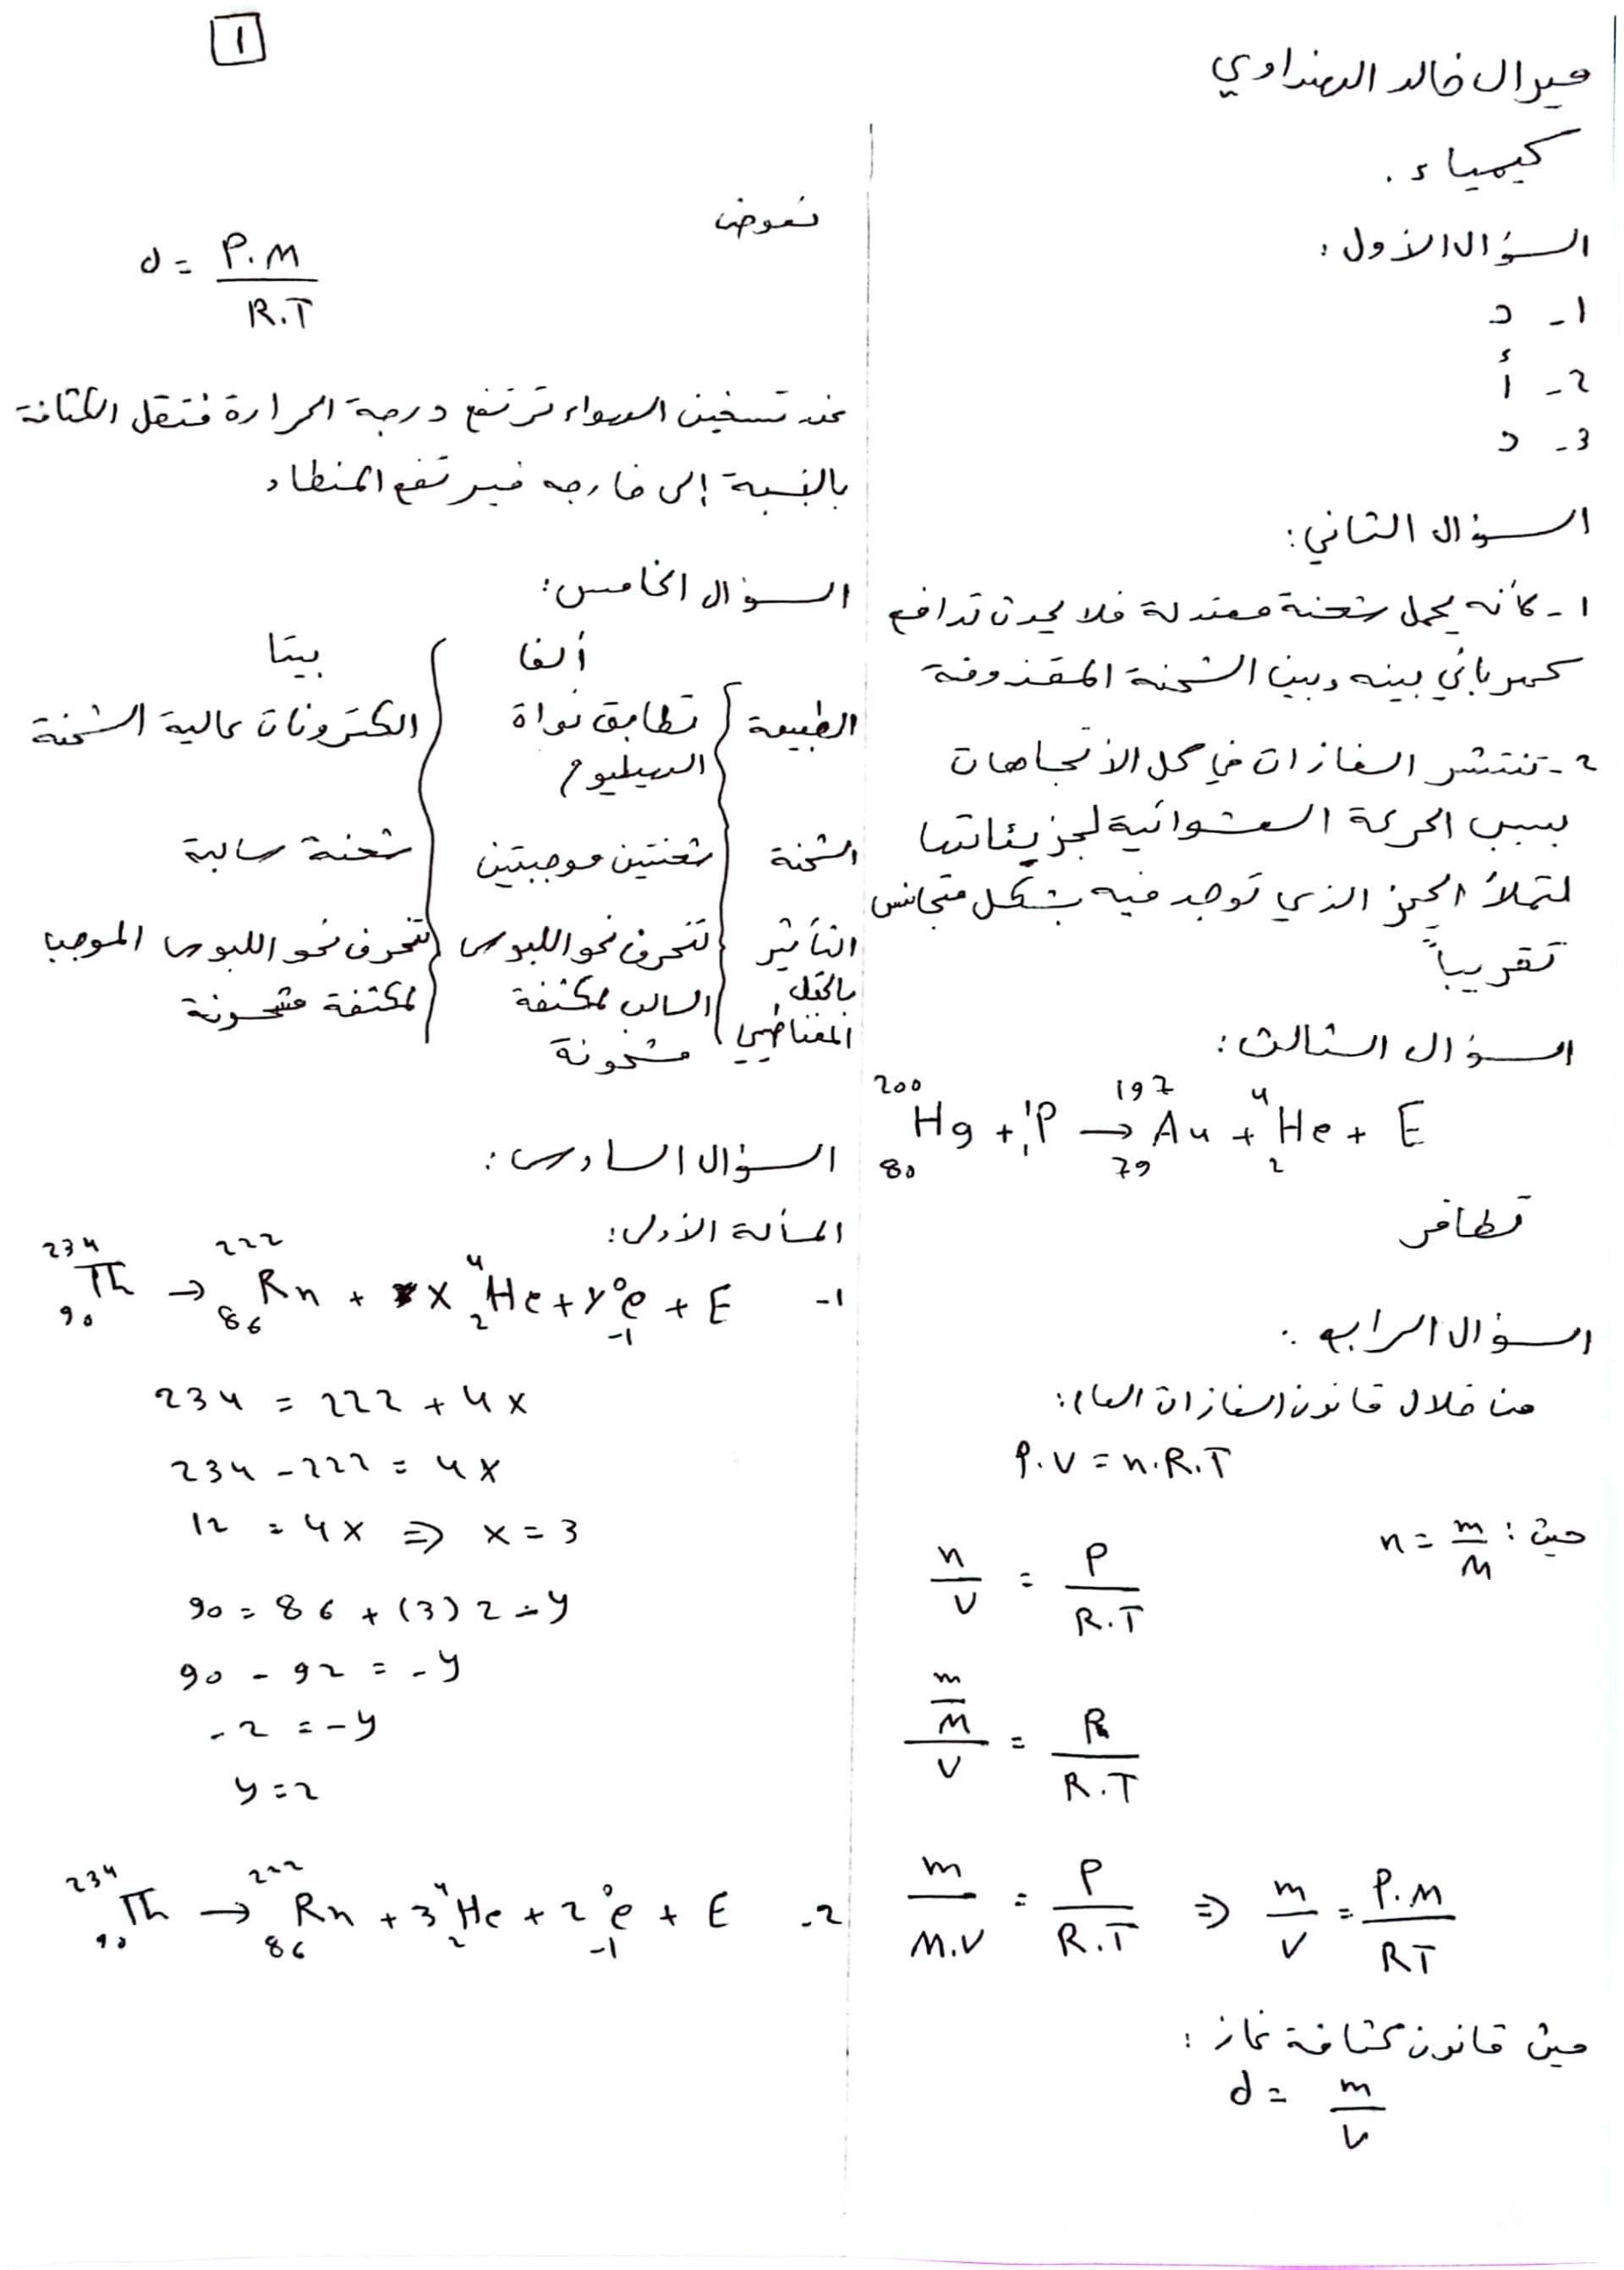 1
ميرال خالد الهنداوي
كيمياء.
السؤال الأول:
1- د
2- أ
3- د
السؤال الثاني:
1- كأنه يحمل شحنة معتدلة فلا يحدث تدافع
كهربائي بينه وبين الشحنة المقذوفة
2- تنتشر الغازات في كل الاتجاهات
بسبب الحركة العشوائية لجزيئاتها
لتملأ الحيز الذي توجد فيه بشكل متجانس
تقريباً
السؤال الثالث:
²⁰⁰₈₀Hg + ¹₁P → ¹⁹⁷₇₉Au + ⁴₂He + E
تطافر
السؤال الرابع:
من خلال قانون الغازات العام:
P.V = n.R.T
حيث: n = m/M
n/V = P/R.T
(m/M)/V = P/R.T
m/M.V = P/R.T ⇒ m/V = P.M/RT
حيث قانون كثافة غاز:
d = m/V
نعوض
d = P.M/R.T
عند تسخين الهواء ترتفع درجة الحرارة فتقل الكثافة
بالنسبة إلى خارجه فيرتفع المنطاد
السؤال الخامس:
ألفا بيتا
الطبيعة تطابق نواة الكترونات عالية الشحنة
الهيليوم
الشحنة شحنتين موجبتين شحنة سالبة
التأثير تنحرف نحو اللبوس تنحرف نحو اللبوس الموجب
بالحقل السالب لمكثفة لمكثفة مشحونة
المغناطيسي مشحونة
السؤال السادس:
المسألة الأولى:
1- ²³⁴₉₀Th → ²²²₈₆Rn + x ⁴₂He + y ⁰₋₁e + E
234 = 222 + 4x
234 - 222 = 4x
12 = 4x ⇒ x = 3
90 = 86 + (3) 2 - y
90 - 92 = - y
-2 = - y
y = 2
2- ²³⁴₉₀Th → ²²²₈₆Rn + 3 ⁴₂He + 2 ⁰₋₁e + E